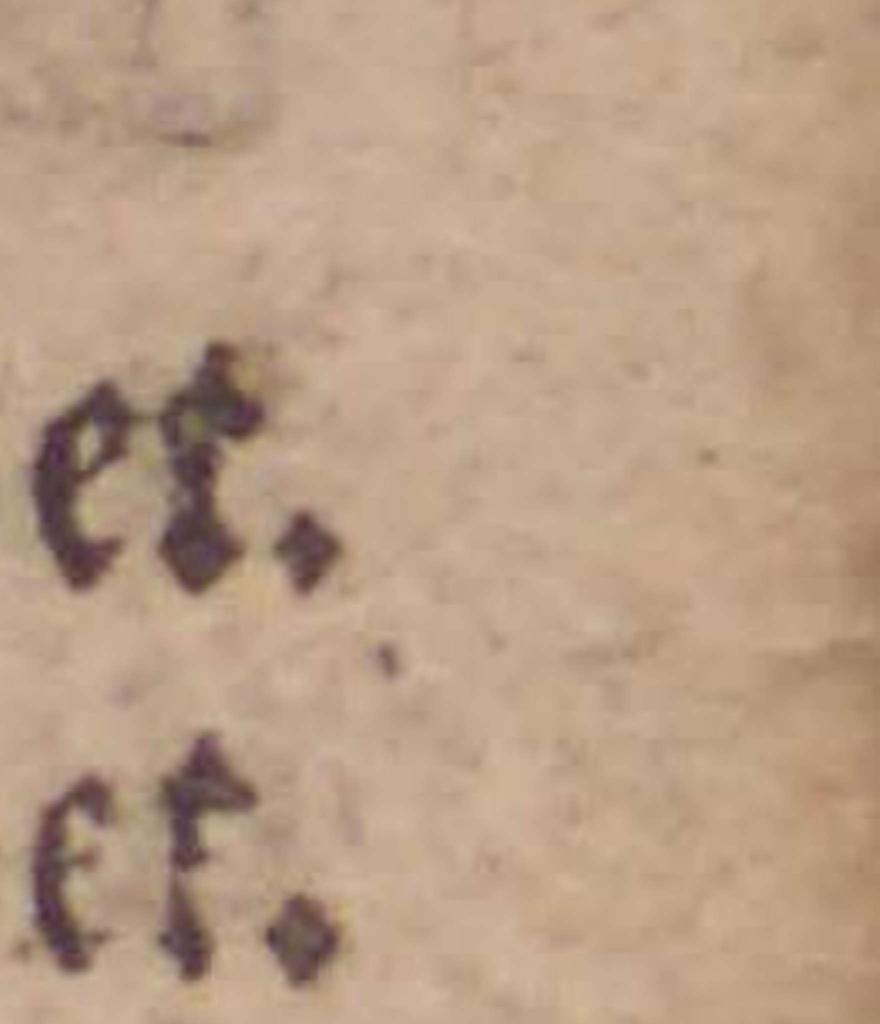 et.
et.